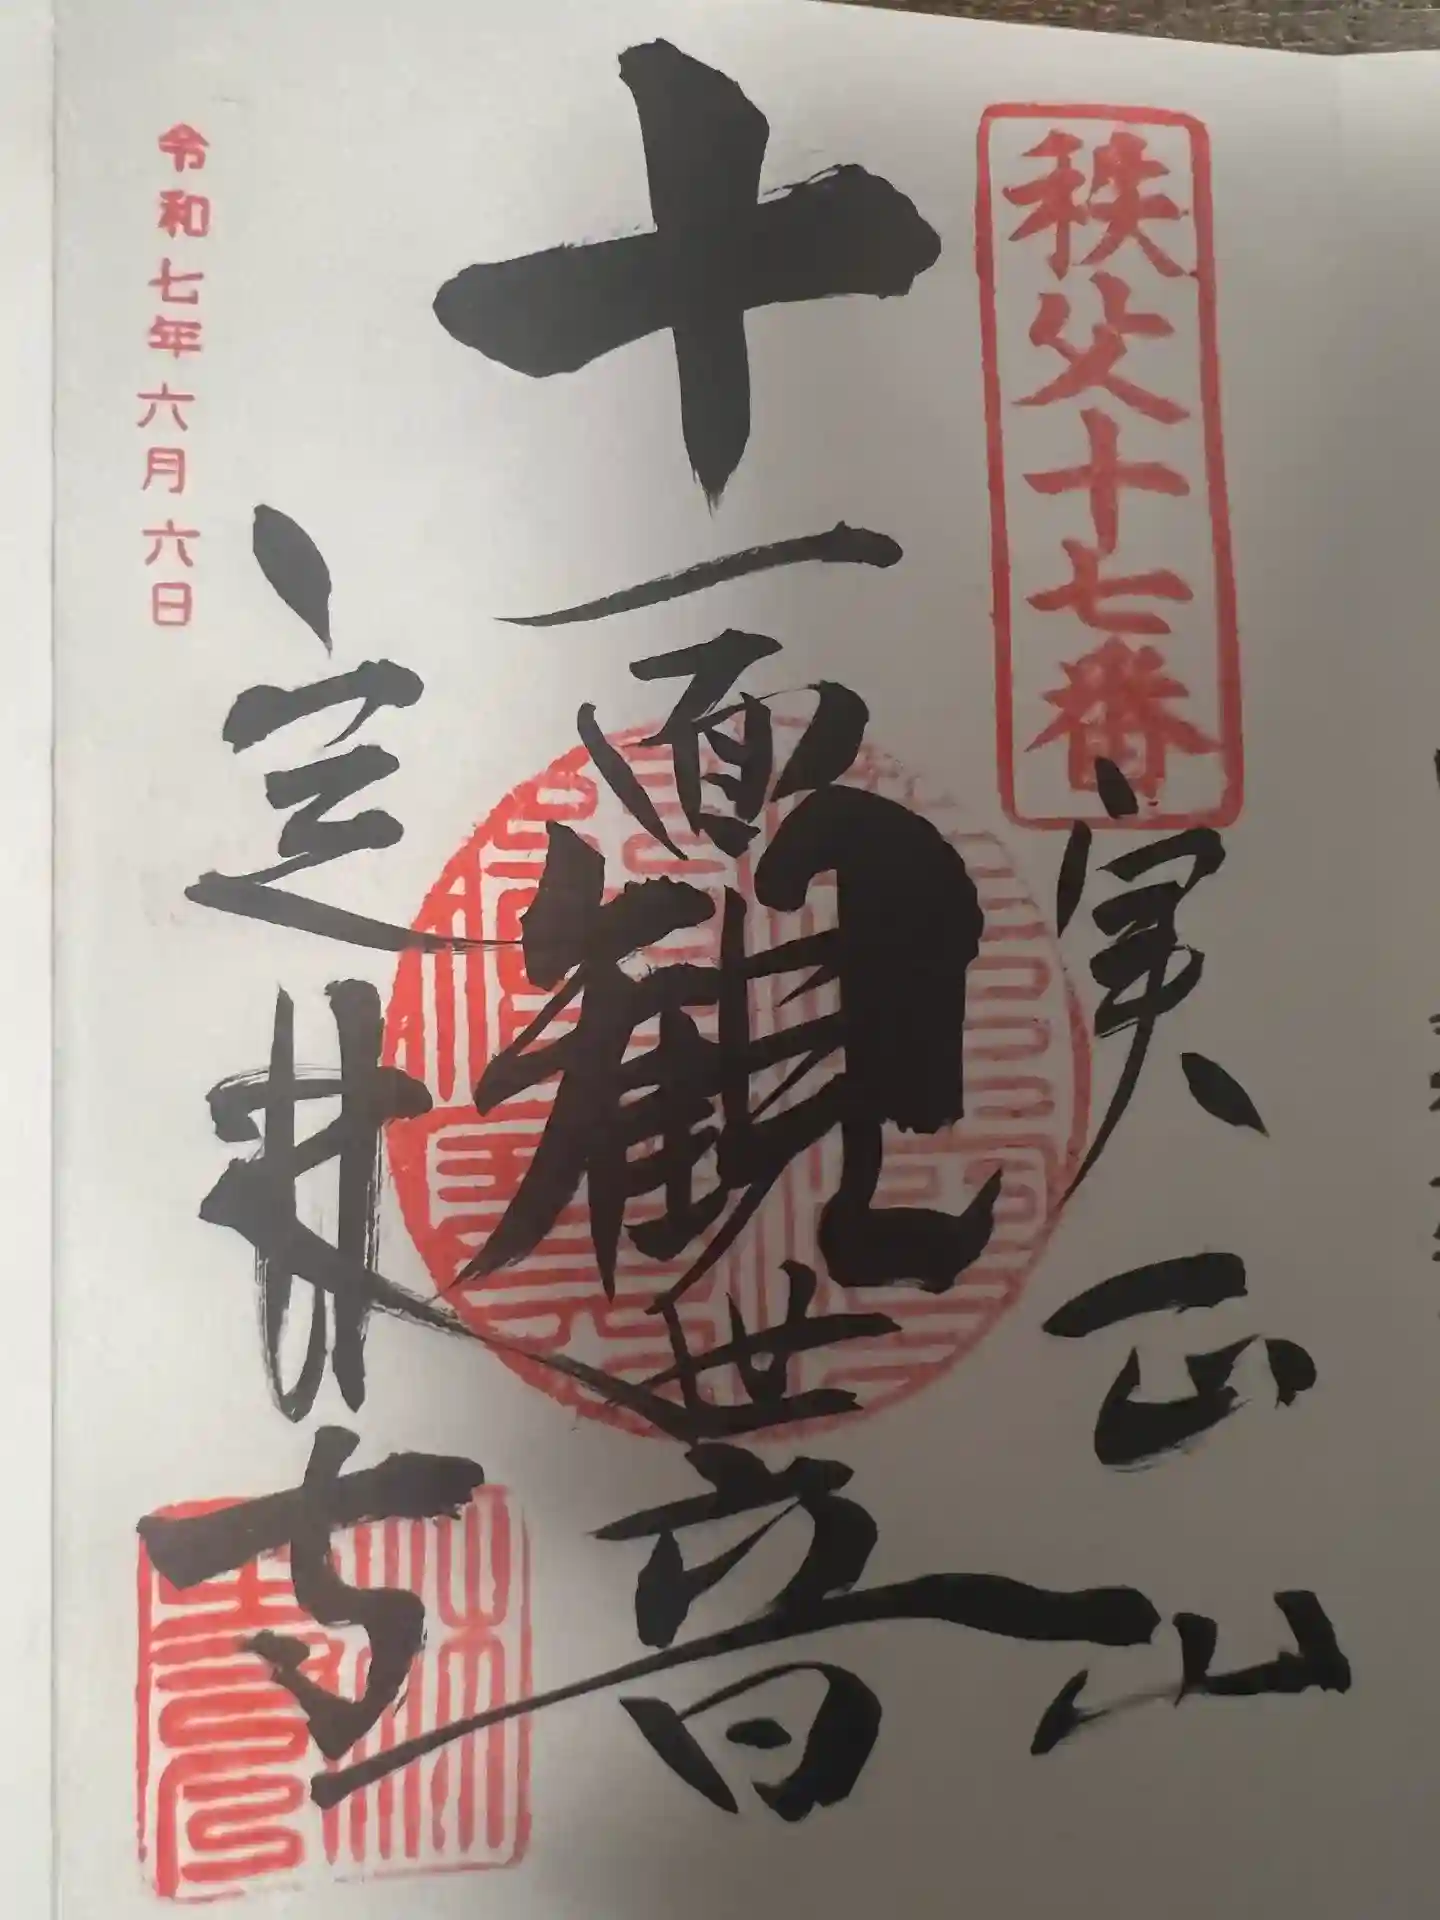 秩父十七番
実正山
十一面観世音
定林寺
令和七年六月六日